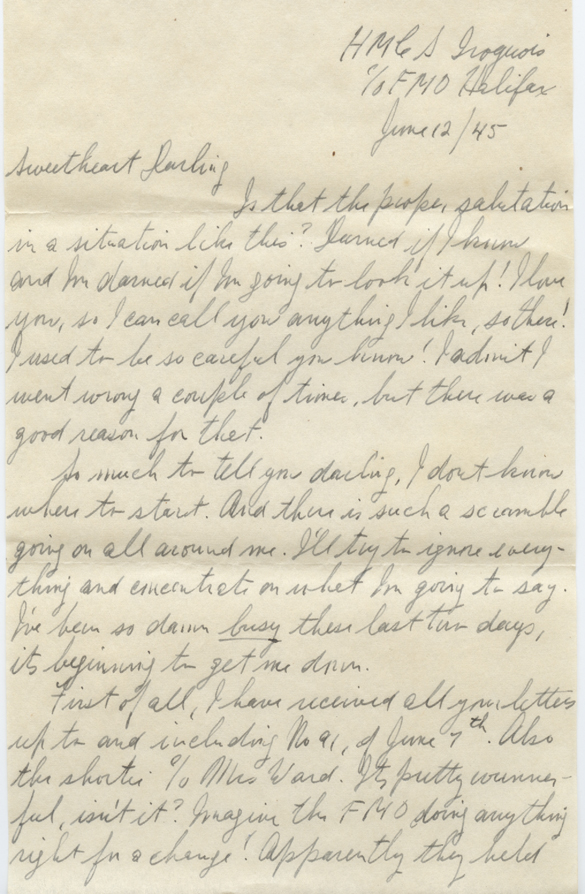 HMCS Iroquois
c/o FMO Halifax
June 12/45
Sweetheart Darling
Is that the proper salutation
in a situation like this? Darned if I know
and I'm darned if I'm going to look it up! I love
you, so I can call you anything I like, so there!
I used to be so careful you know! I admit I
went wrong a couple of times, but there was a
good reason for that.
So much to tell you darling, I don't know
where to start. And there is such a scramble
going on all around me. I'll try to ignore every-
thing and concentrate on what I'm going to say.
I've been so damn busy these last two days,
its beginning to get me down.
First of all, I have received all your letters
up to and including No 91, of June 7th. Also
the shortie c/o Mrs Ward. Its pretty wunner-
ful, isn't it? Imagine the FMO doing anything
right for a change! Apparently they held